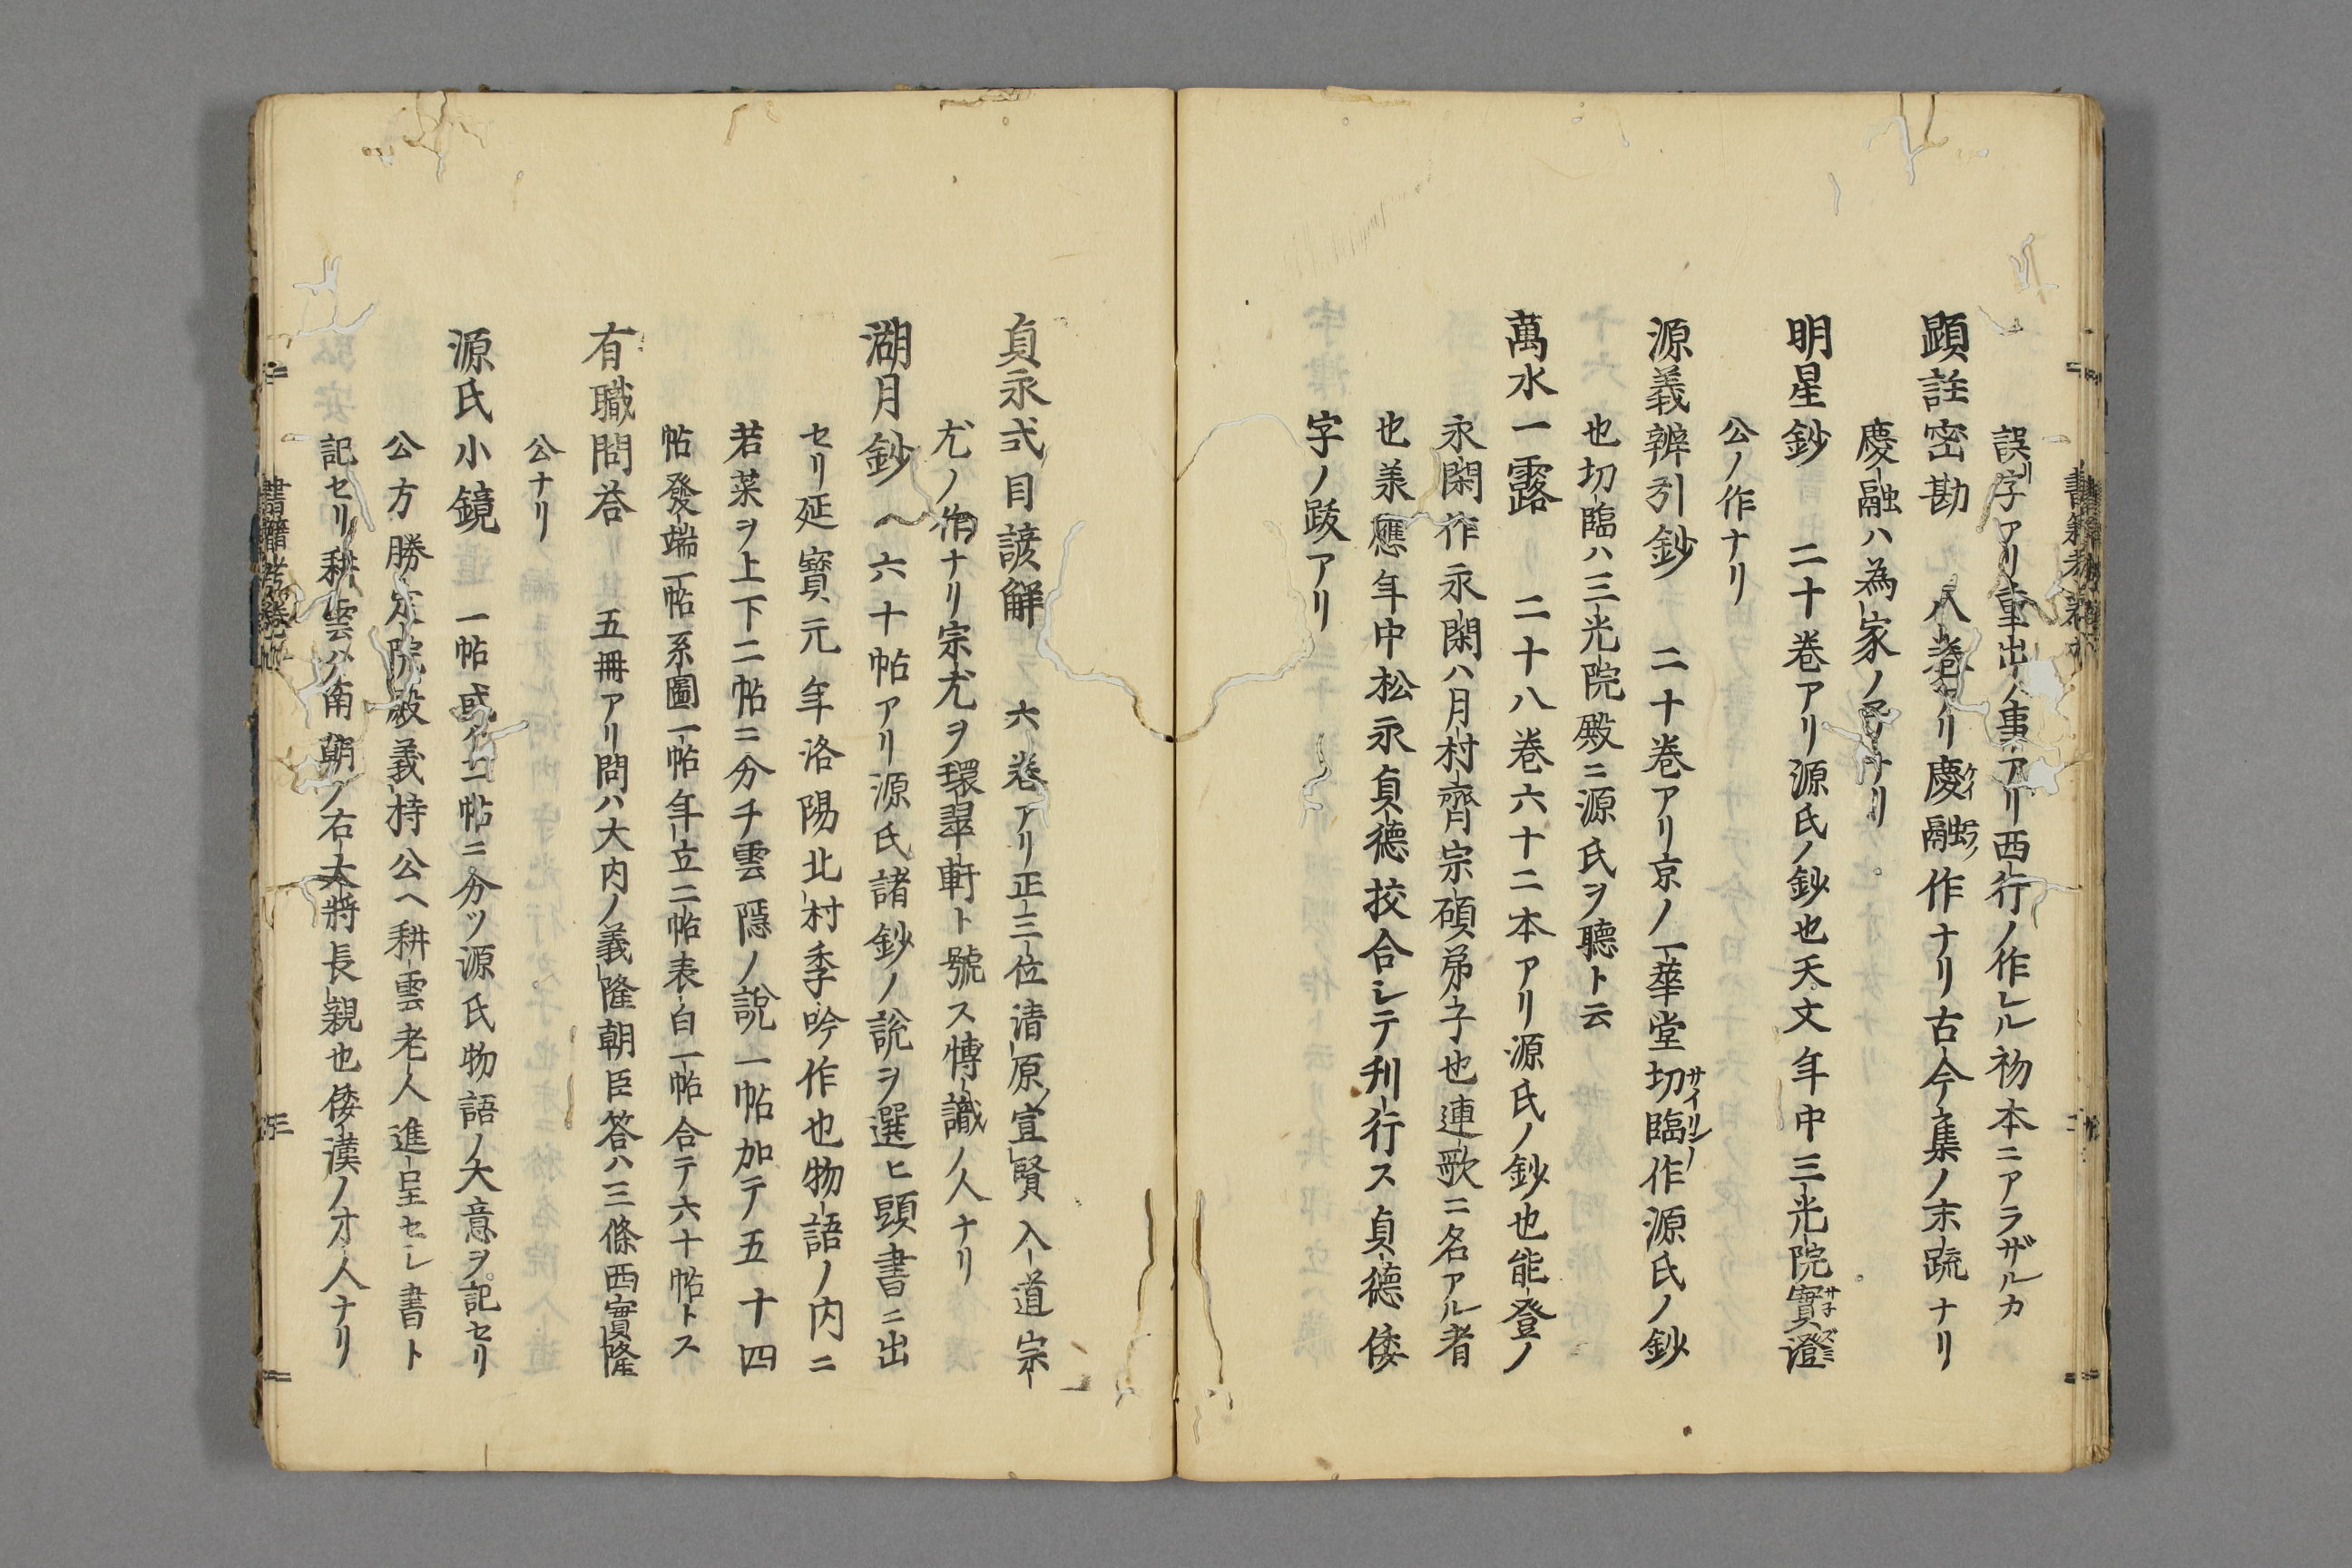 誤字アリ重出ノ事アリ西行ノ作レル初本ニアラザルカ
顕註密勘 八巻アリ慶融作ナリ古今集ノ末疏ナリ
慶融ハ為家ノ子ナリ
明星鈔 二十巻アリ源氏ノ鈔也天文年中三光院實澄
公ノ作ナリ
源義辨引鈔 二十巻アリ京ノ一華堂切臨作源氏ノ鈔
也切臨ハ三光院殿ニ源氏ヲ聴ト云
萬水一露 二十八巻六十二本アリ源氏ノ鈔也能登ノ
永閑作永閑ハ月村齊宗碩弟子也連歌ニ名アル者
也羕應年中松永貞德挍合シテ刋行ス貞德倭
字ノ跋アリ
貞永式目諺解 六巻アリ正三位清原宣賢入道宗
尤ノ作ナリ宗尤ヲ環翠軒ト號ス博識ノ人ナリ
湖月鈔 六十帖アリ源氏諸鈔ノ說ヲ選ヒ頭書ニ出
セリ延寶元年洛陽北村季吟作也物語ノ内ニ
若菜ヲ上下二帖ニ分チ雲隱ノ說一帖加テ五十四
帖發端一帖系圖一帖年立二帖表白一帖合テ六十帖トス
有職問荅 五冊アリ問ハ大内ノ義隆朝臣答ハ三條西實隆
公ナリ
源氏小鏡 一帖或ハ二帖ニ分ツ源氏物語ノ大意ヲ記セリ
公方勝定院殿義持公ヘ耕雲老人進呈セシ書ト
記セリ耕雲ハ南朝ノ右大將長親也倭漢ノ才人ナリ